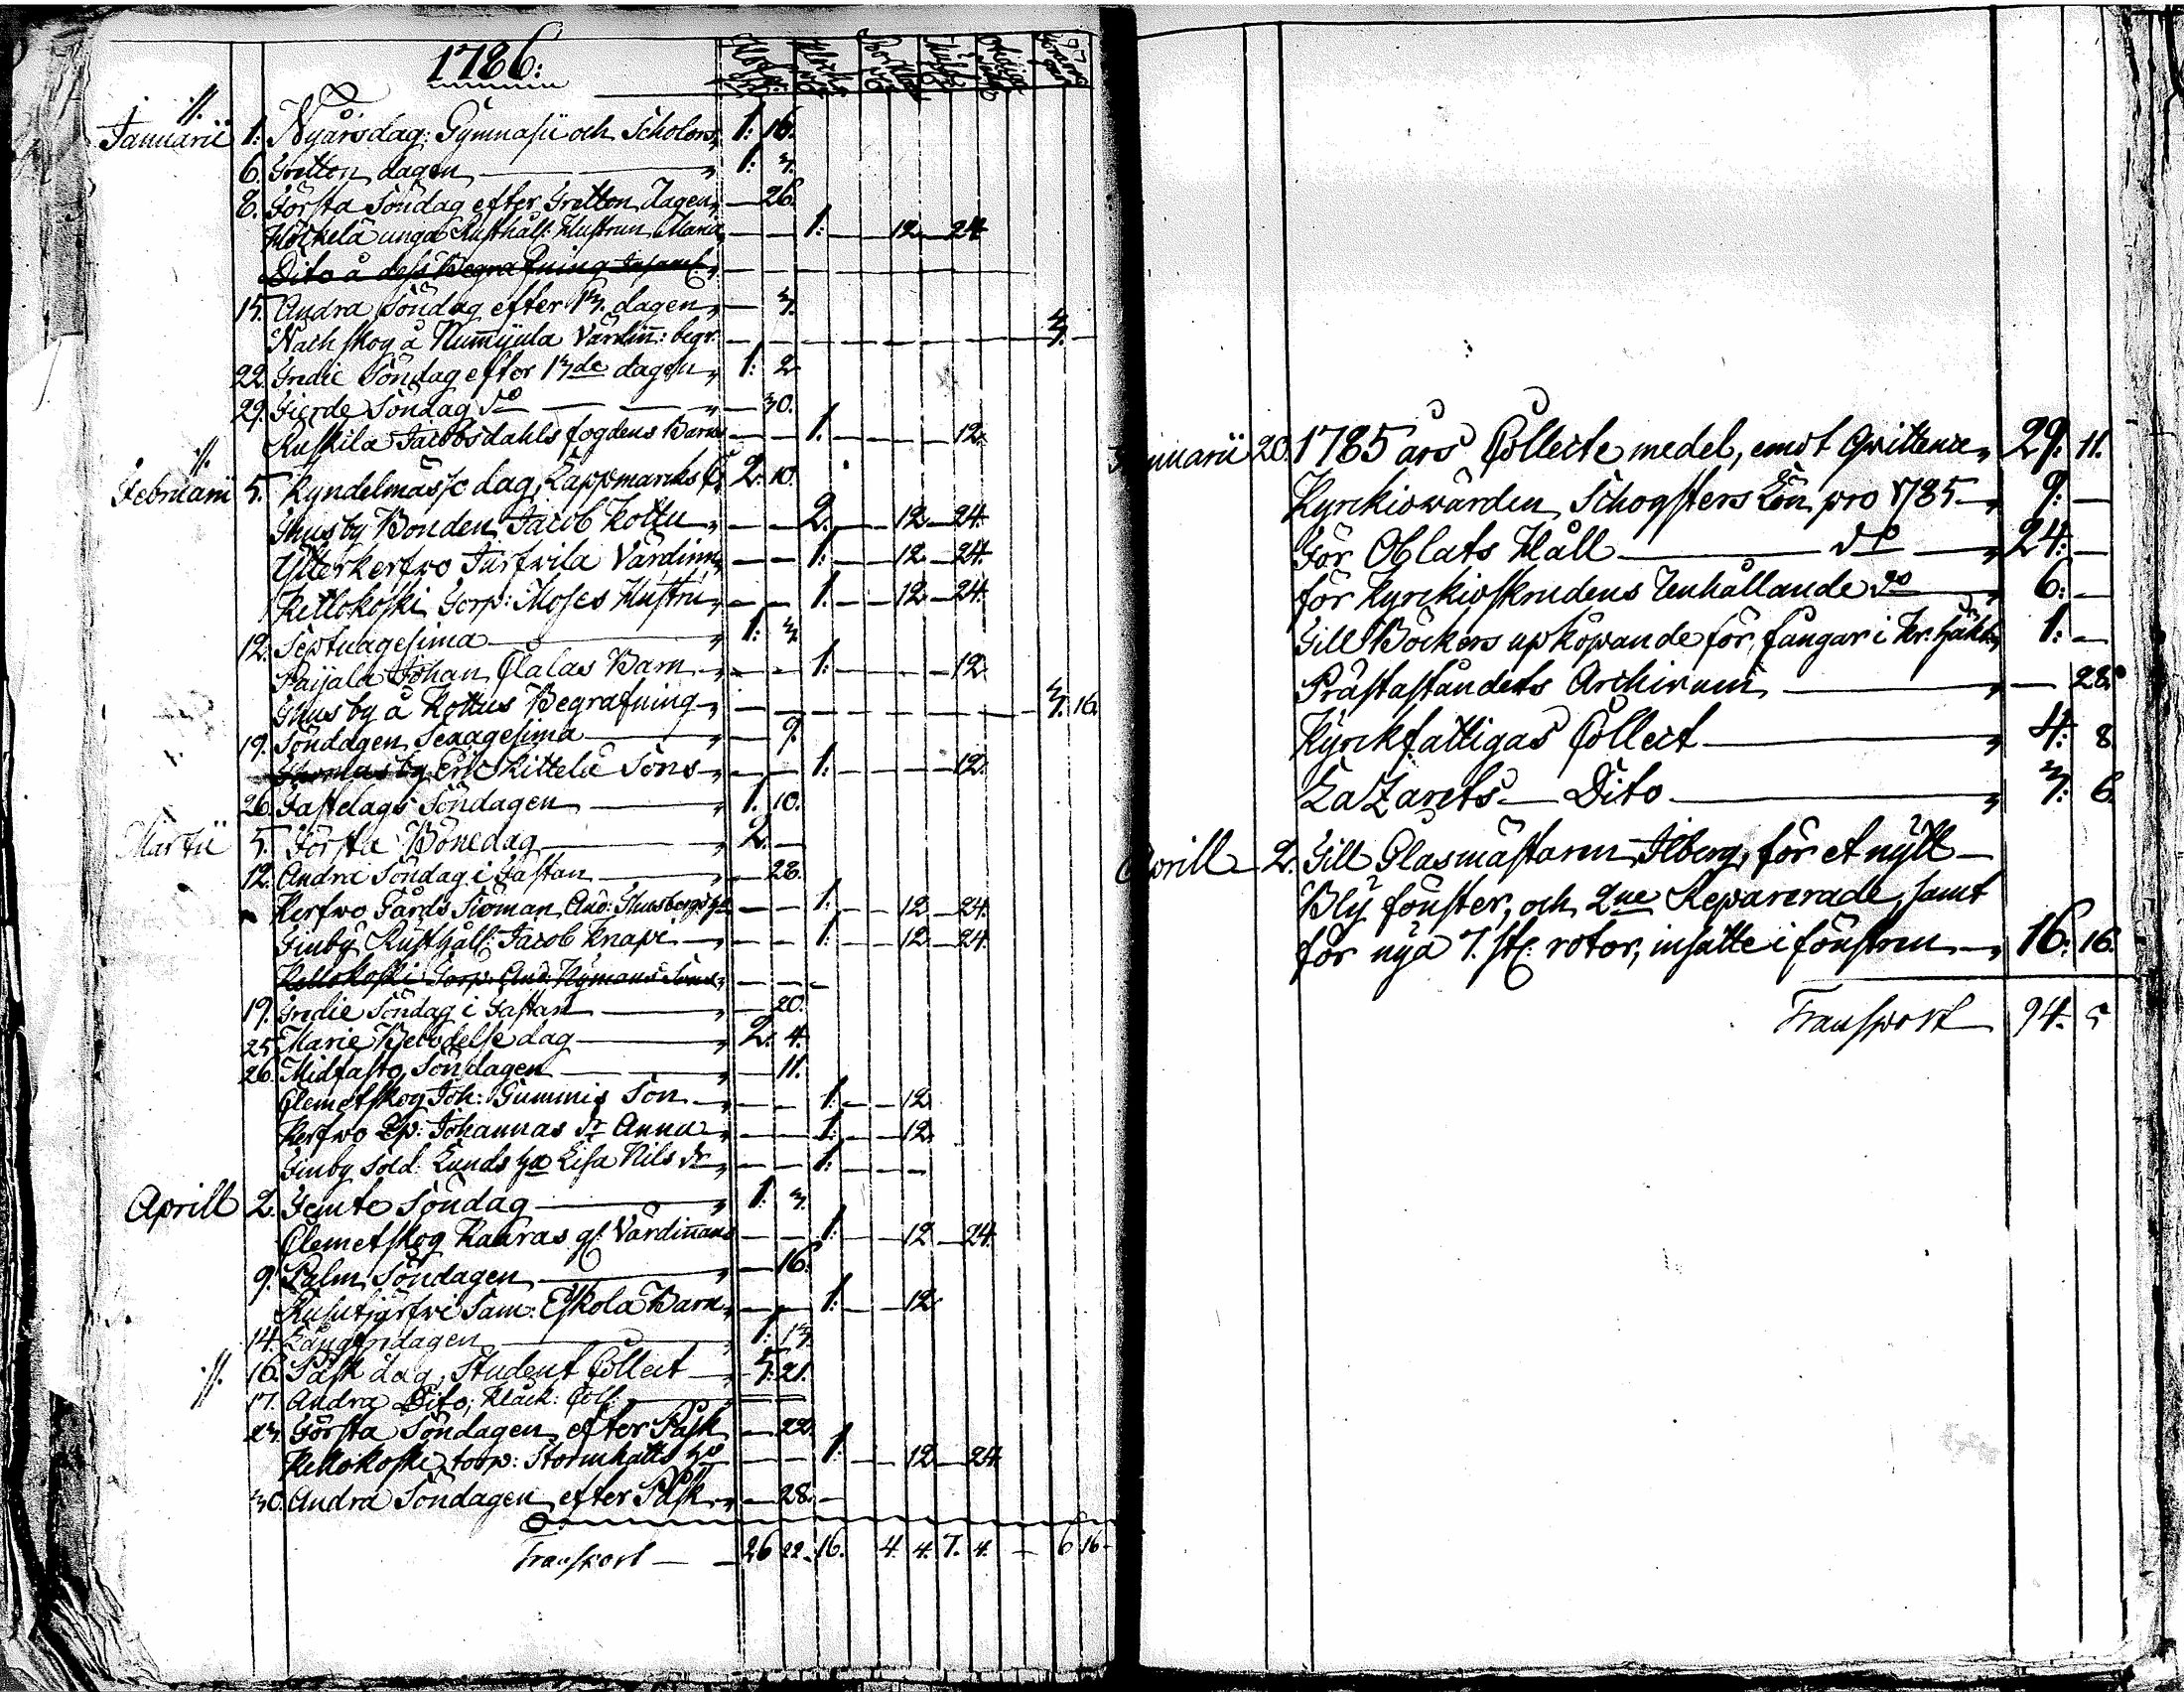 1786:
Januarii 1. Nyårsdag: Gymnasii och Scholens 1: 16.
6. Tretton dagen 1: 3.
8. Första Söndag efter Tretton dagen — 26.
unga Rusthåll: Hustrun Maria — — 1: — — 12 — 24
Dito å dess Begrafning
15. Andra Söndag efter 13. dagen — 3.
Nackskog å Nummijula Värdin: begr. 3. —
22. Tredie Söndag efter 13de dagen 1: 2
29. Fierde Söndag do — 30.
Ruskila Jacobsdahls fogdens Barns — — 1. — — — 12.
Februarii 5. Kyndelmässo dag, Lappmarcks C. 2: 10.
Thusby Bonden Jacob Kottu — — 2. — — 12 — 24.
Ytterkerfvo Järfvila Värdinn — — 1: — — 12 — 24.
Kellokoski Torp: Moses Hustru — — 1. — — 12 — 24.
12. Septuagesima 1: 3.
Paijala Johan Clalas Barn — — 1: — — — 12
Thusby å Kottus Begrafning 3. 16.
19. Söndagen Sexagesima — 9.
Eric Kittelä Sons — — 1: — — — 12.
26. Fastelags Söndagen 1. 10.
Martii 5. Första Bönedag 2. —
12. Andra Söndag i Fastan — 28.
Kerfvo Gårds Sioman And: Thusbergs — — 1: — — 12 — 24.
Finby Rusthåll: Jacob Knape — — 1: — — 12 — 24.
Kellokoski Torp: And: Nymans Sons — — —
19. Tredie Söndag i Fastan — 20.
25. Marie Bebodelse dag 2. 4.
26. Midfasto Söndagen — 11.
Clemetskog Joh: Gummis Son — — 1: — — 12
Kerfvo Johannas dr Anna — — 1: — — 12.
Finby Sold: Lunds Lisa Nils dr — — 1: — — —
Aprill 2. Femte Söndag 1: 3.
Clemetskog Kauras gl: Värdinnans — — 1: — — 12 — 24.
9. Palm Söndagen — 16.
Rusutjärfvi Sam: Eskola Barn — — 1: — — 12
14. Långfredagen 1: 13.
16. Påsk dag, Student Collect 3: 21.
17. Andra Dito, Klåck: Coll: — —
23. Första Söndagen efter Påsk — 22.
Kellokoski torp: Stormhatts — — 1: — — 12 — 24
30. Andra Söndagen efter Påsk — 28. —
Transport — 26 22. 16. 4. 4. 7. 4. — 6 16
Januarii 20. 1785 års Collecte medel, emot Qvittence 29. 11.
Kyrckiowärden Schogsters Lön pro 1785 9: —
För Oblats Håll do 24: —
för Kyrckioskrudens Renhållande do 6: —
Till Böckers upköpande för fångar i Kr: häkt 1: —
Prästaståndets Archivum — 28.
Kyrckfattigas Collect 4: 8
LaZarets Dito 3: 6.
Aprill 2. Till Glasmästaren Ilberg, för et nytt
Bly fönster, och 2ne Reparerade, samt
för nya 7. st. rutor, insatte i fönstren 16. 16.
Transport 94. 5